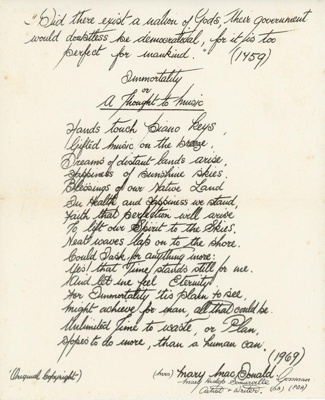 "Did there exist a nation of Gods, their government
would doubtless be democratical, for it is too
perfect for mankind." (1459)
Immortality
or
A Thought to Music
Hands touch piano keys,
Gifted music on the breeze,
Dreams of distant lands arise,
Happiness of Sunshine skies.
Blessings of our Native Land
In Health and Happiness we stand,
Faith that perfection will arise
To lift our Spirit to the Skies.
Neat waves laps on to the shore.
Could I ask for anything more:
Yes! that Time stands still for me.
And let me feel Eternity
For Immortality tis plain to see,
might achieve for man, all that could be.
Unlimited Time to waste, or Plan,
to do more, than a human can.
(1969)
(Original Copyright) (Mrs) Mary MacDonald Gorman
Mary Somerville
Artist & Writer.